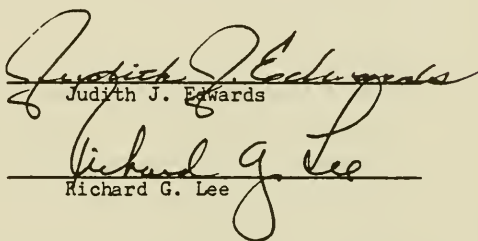 Judith J. Edwards
Judith J. Edwards
Richard G. Lee
Richard G. Lee